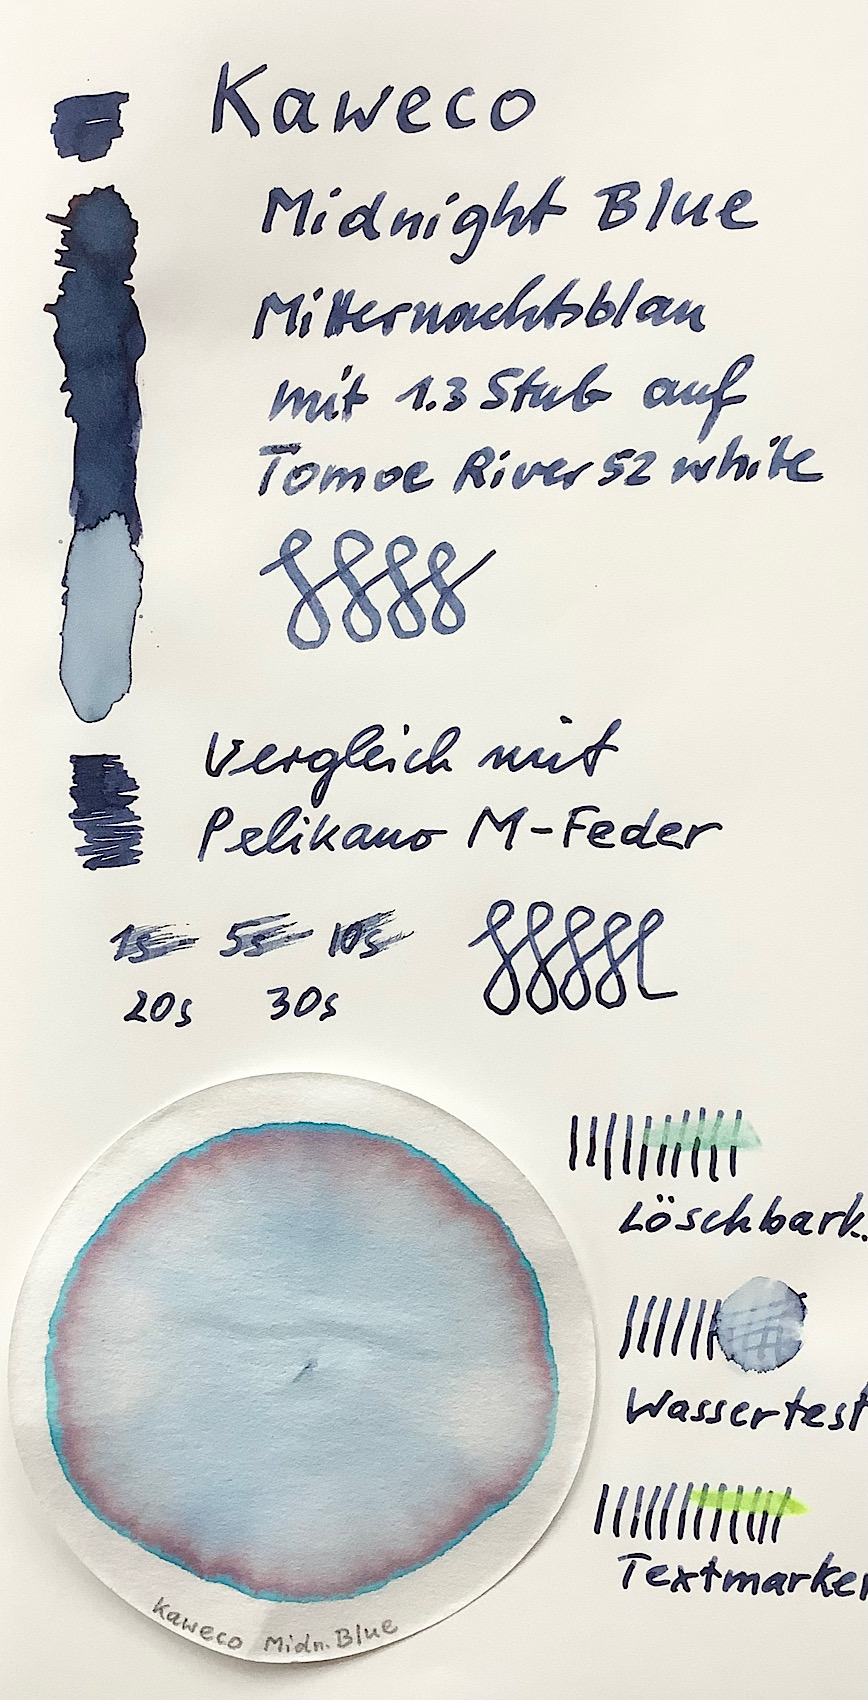 Kaweco
Midnight Blue
Mitternachtsblau
mit 1.3 Stub auf
Tomoe River 52 white
Vergleich mit
Pelikano M-Feder
1s 5s 10s
20s 30s
Löschbark.
Wassertest
Textmarker
Kaweco Midn. Blue